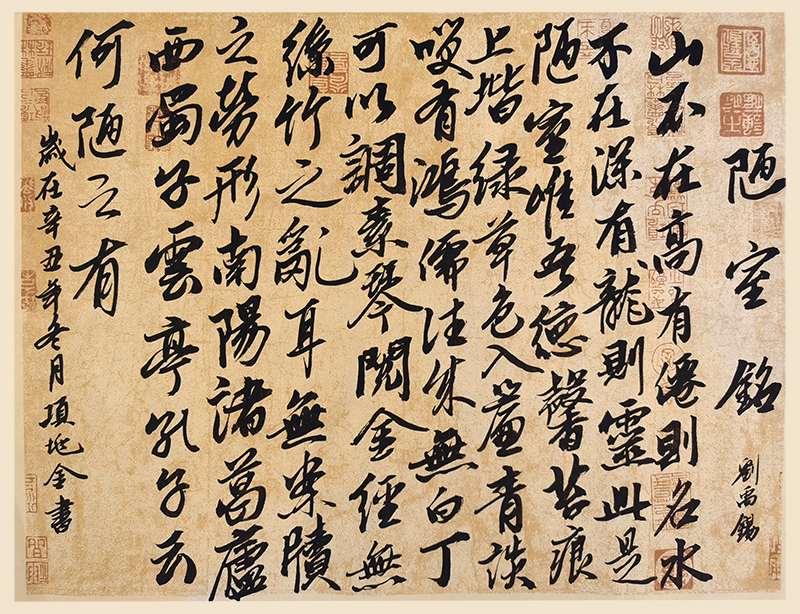 陋室銘
劉禹錫
山不在高有僊則名水
不在深有龍則靈此是
陋室惟吾德馨苔痕
上堦緑草色入簾青談
咲有鴻儒往来無白丁
可以調素琴閱金經無
絲竹之亂耳無案牘
之勞形南陽諸葛廬
西蜀子雲亭孔子云
何陋之有
歲在辛丑年冬月項金書